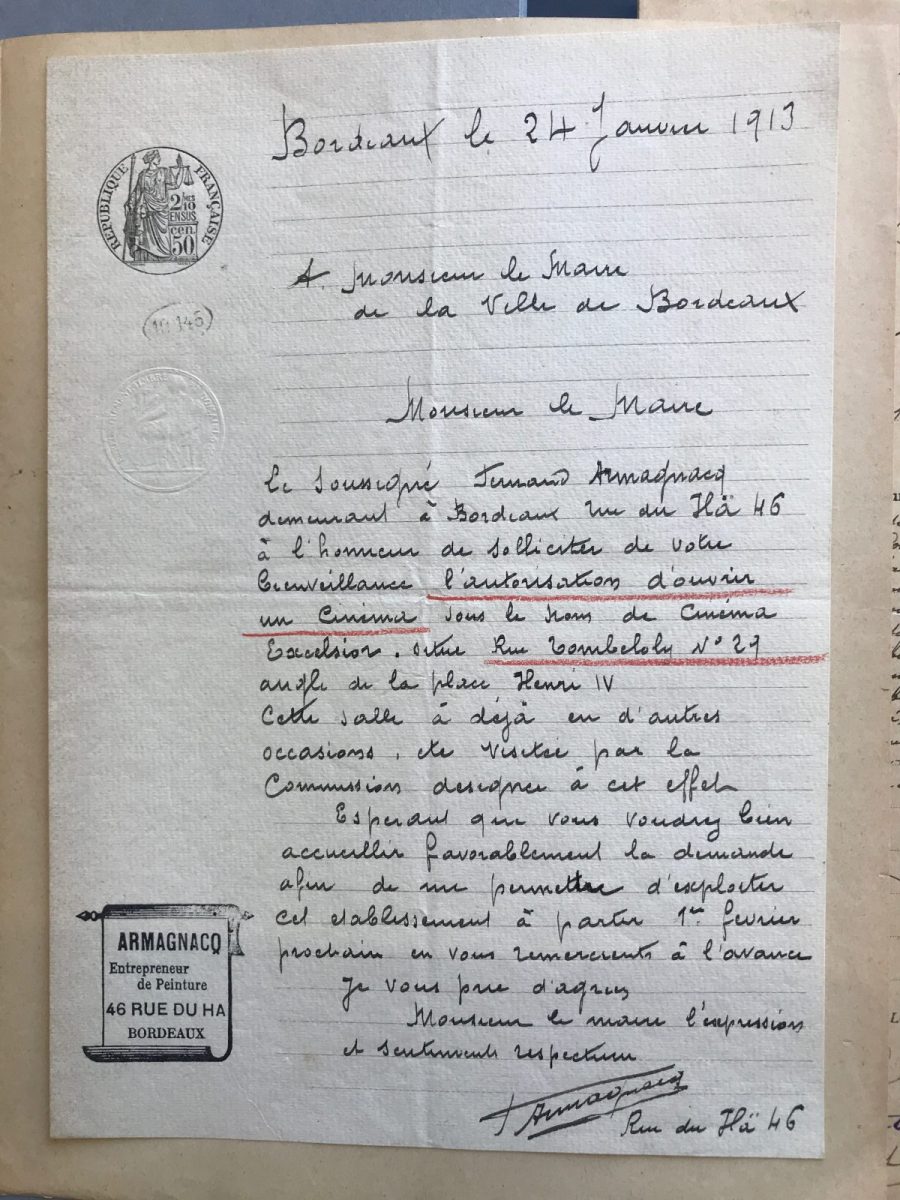 Bordeaux le 24 Janvier 1913
RÉPUBLIQUE FRANÇAISE
2 10
EN SUS
cen.
50
A. Monsieur le Maire
de la Ville de Bordeaux
Monsieur le Maire
Le Soussigné Fernand Armagnacq
demeurant à Bordeaux rue du Hâ 46
à l'honneur de solliciter de votre
bienveillance l'autorisation d'ouvrir
un Cinéma sous le nom de Cinéma
Excelsior. situe Rue Tombeloly N° 29
angle de la place Henri IV
Cette salle à déjà en d'autres
occasions, ete visitée par la
Commission designee à cet effet
Esperant que vous voudrez bien
accueillir favorablement la demande
afin de me permettre d'exploiter
cet etablissement à partir 1er fevrier
prochain en vous remercients à l'avance
Je vous prie d'agreez
Monsieur le maire l'expression
et sentiments respectueux
Armagnacq
Rue du Hâ 46
ARMAGNACQ
Entrepreneur
de Peinture
46 RUE DU HA
BORDEAUX